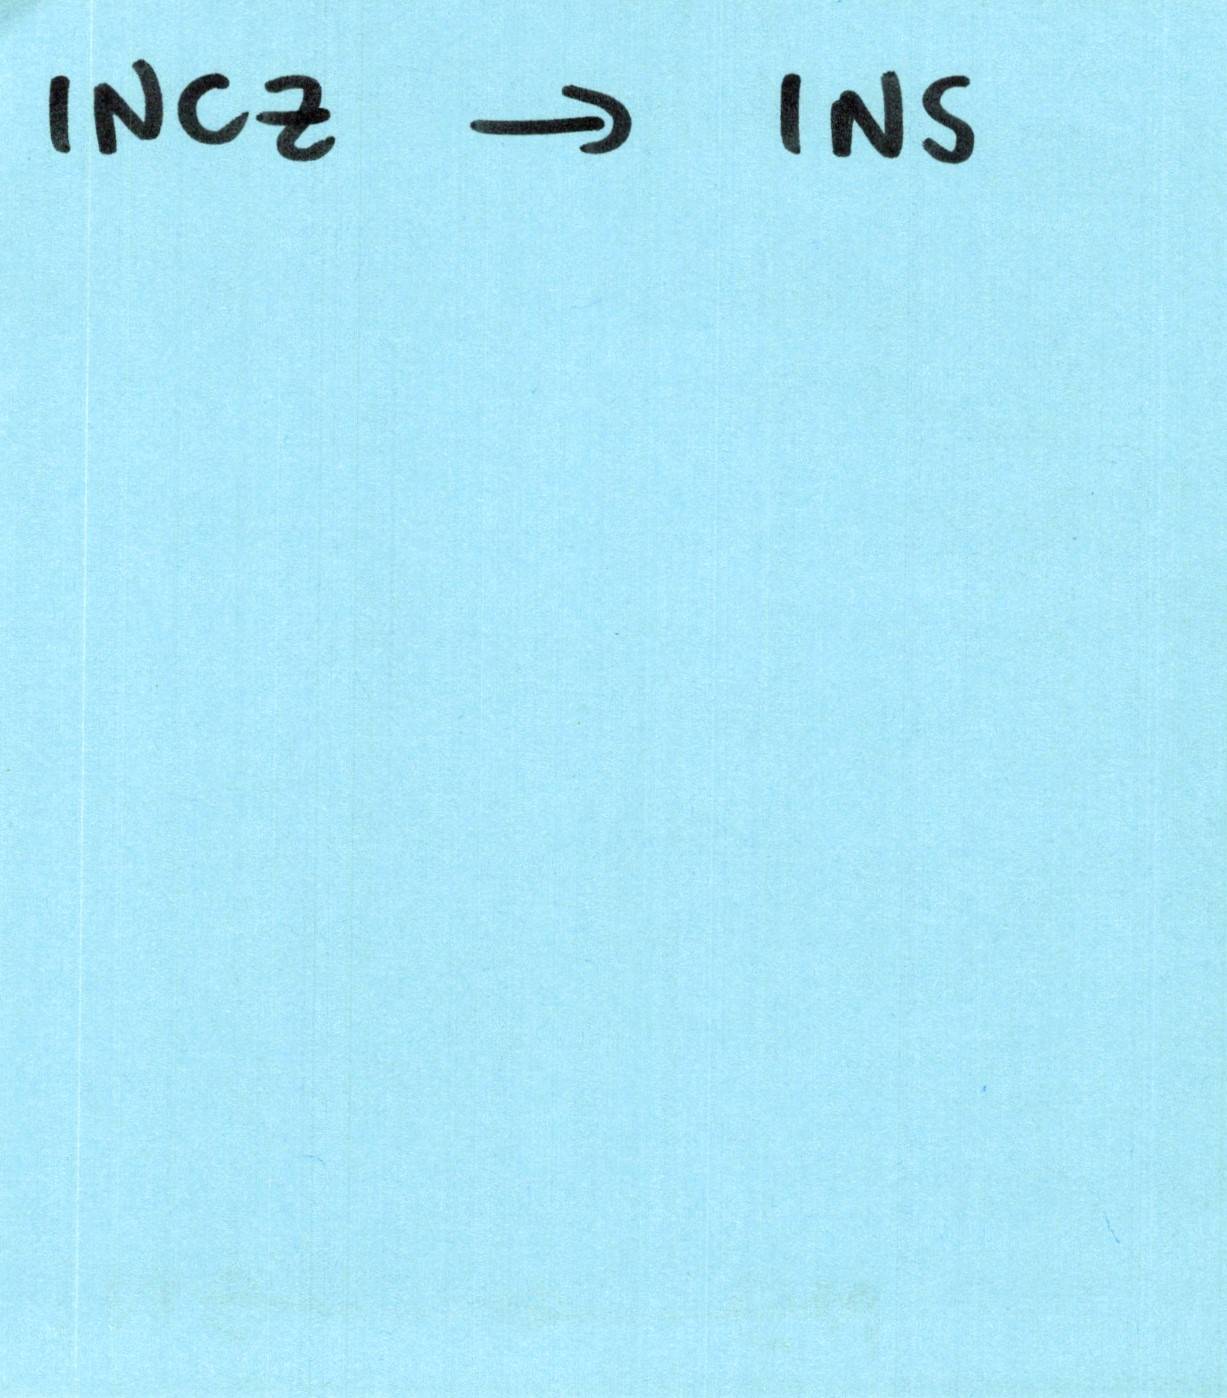 INCZ → INS